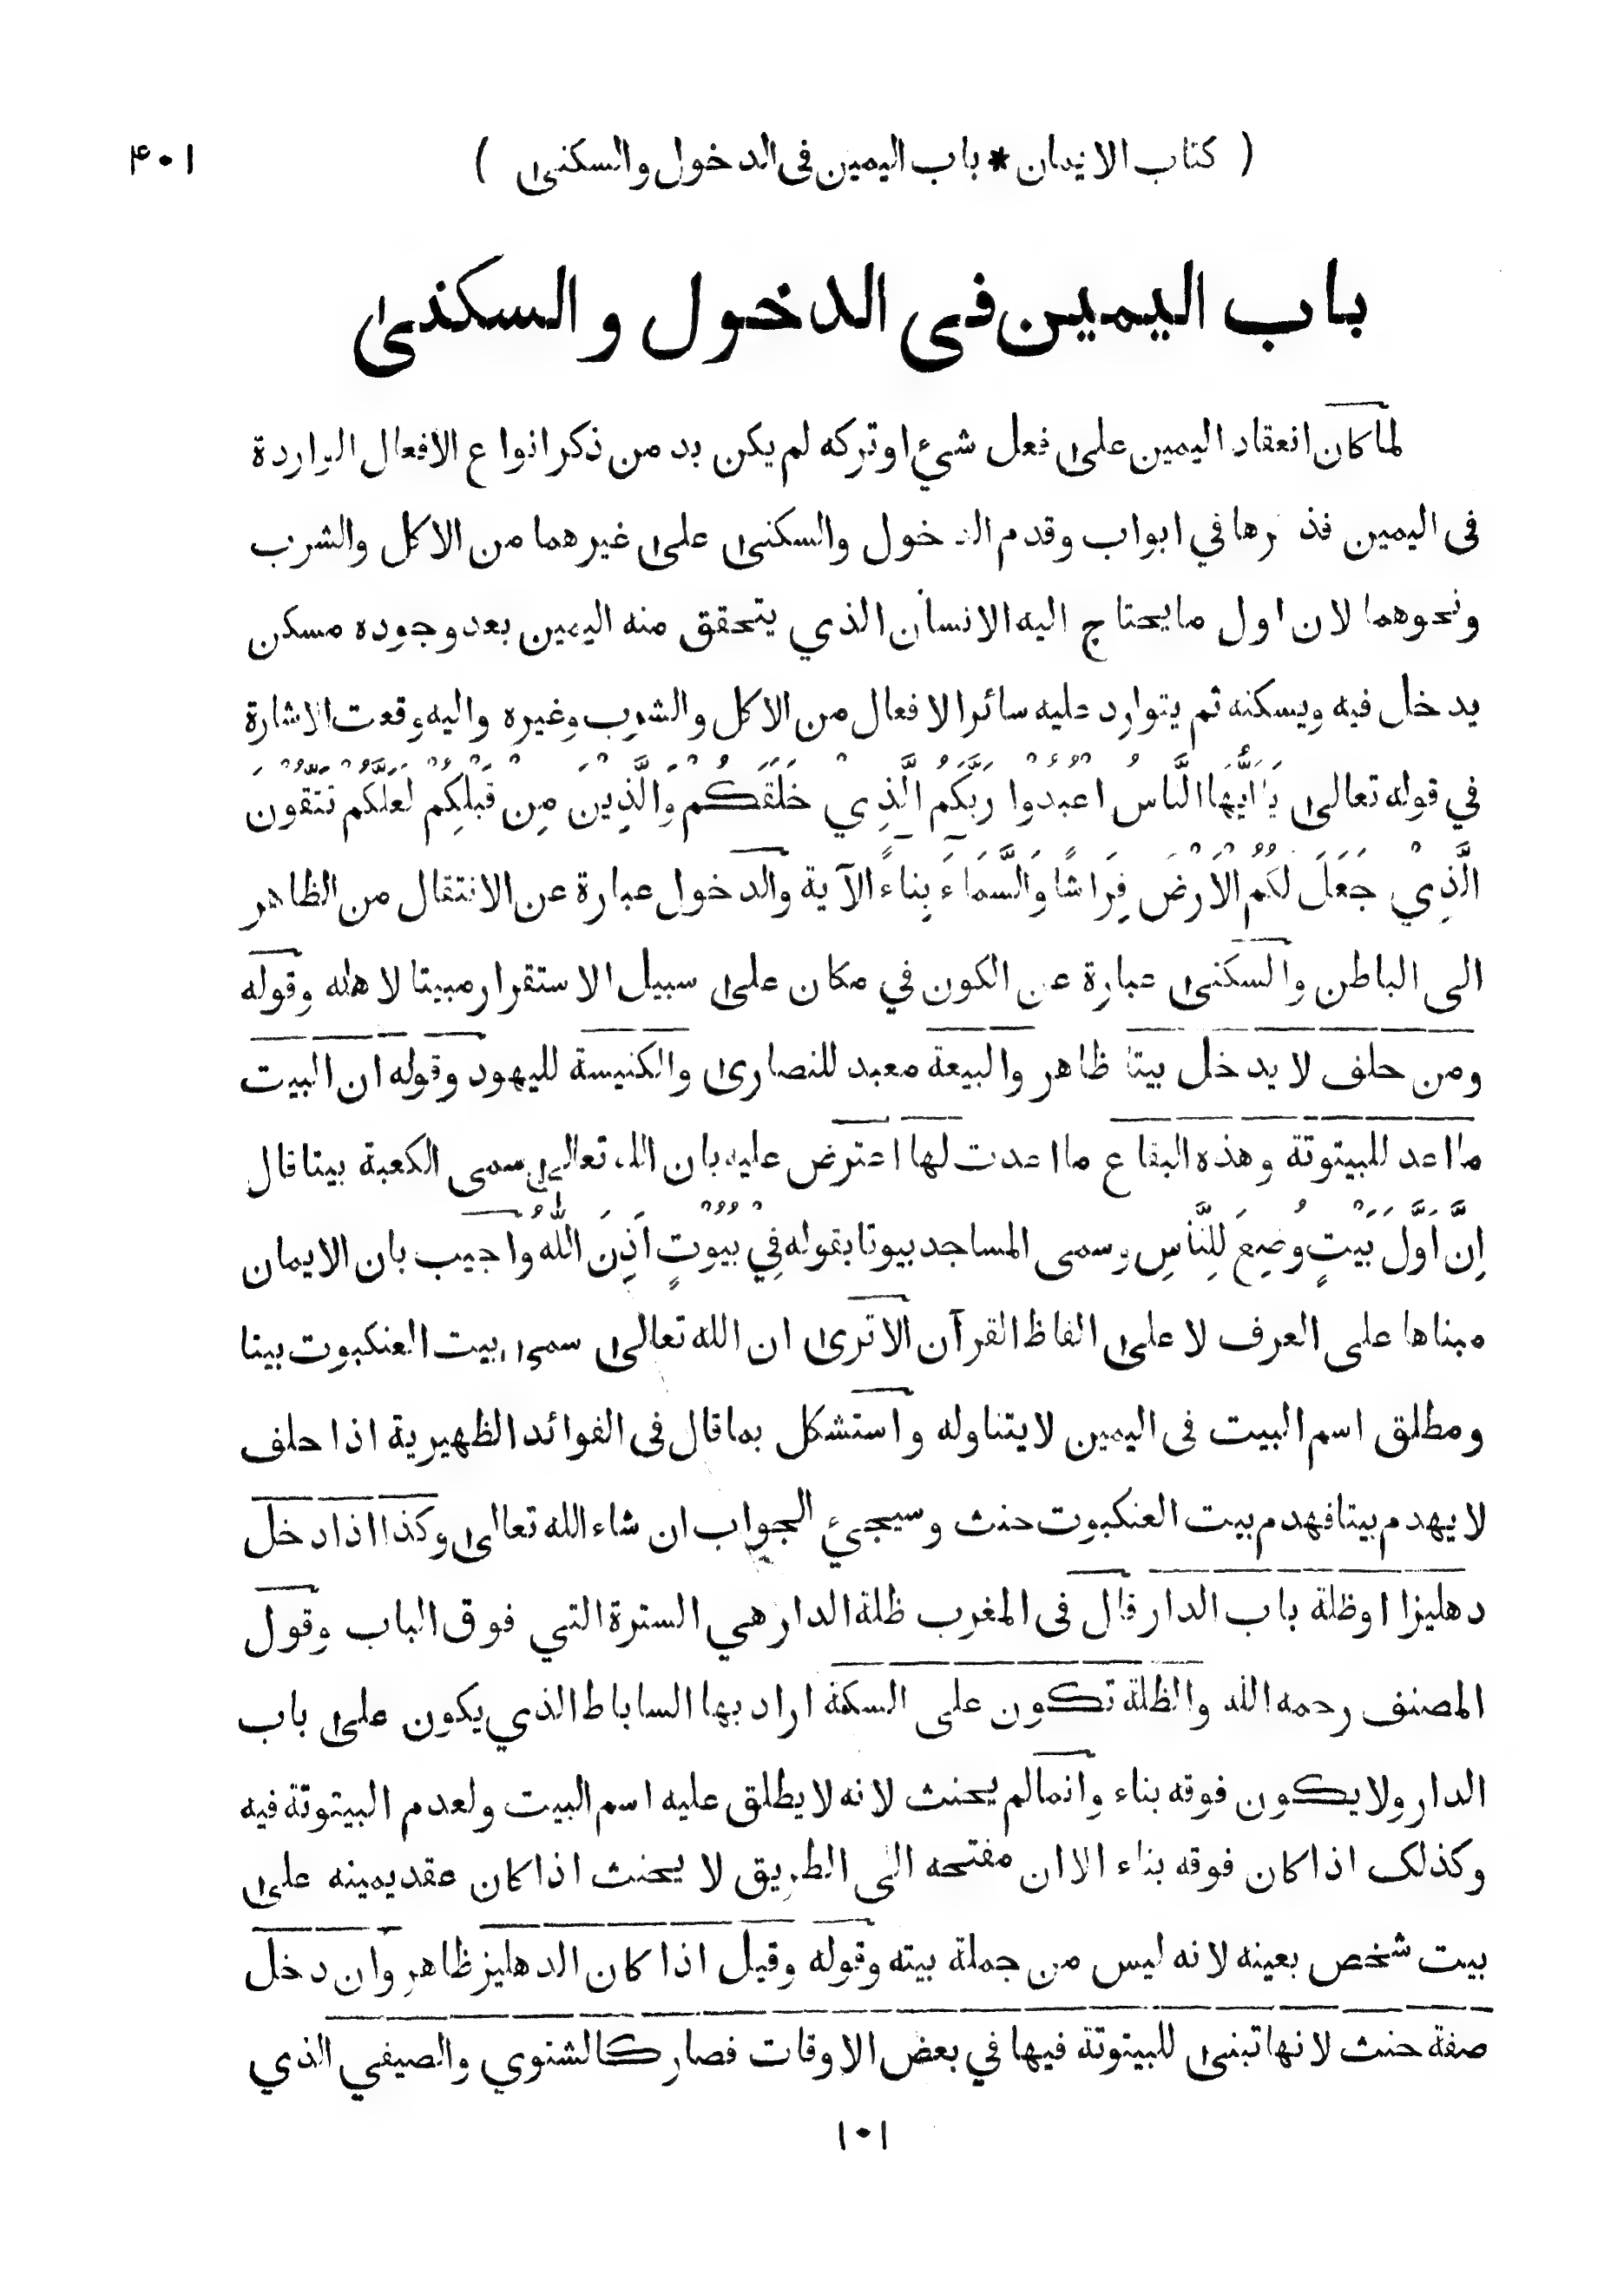 ( كتاب الايمان * باب اليمين فى الدخول والسكنىٰ )
۴۰۱
باب اليمين فى الدخول و السكنىٰ
لما كان انعقاد اليمين علىٰ فعل شيء او تركه لم يكن بد من ذكر انواع الافعال الواردة
فى اليمين فذكرها في ابواب وقدم الدخول والسكنىٰ علىٰ غيرهما من الاكل والشرب
ونحوهما لان اول ما يحتاج اليه الانسان الذي يتحقق منه اليمين بعد وجوده مسكن
يدخل فيه ويسكنه ثم يتوارد عليه سائر الافعال من الاكل والشرب وغيره واليه وقعت الاشارة
في قوله تعالىٰ يَاۤ اَيُّهَا النَّاسُ اعْبُدُوْا رَبَّكُمُ الَّذِيْ خَلَقَكُمْ وَالَّذِيْنَ مِنْ قَبْلِكُمْ لَعَلَّكُمْ تَتَّقُوْنَ
الَّذِيْ جَعَلَ لَكُمُ الْاَرْضَ فِرَاشًا وَالسَّمَاۤءَ بِنَاءً الآية والدخول عبارة عن الانتقال من الظاهر
الى الباطن والسكنىٰ عبارة عن الكون في مكان علىٰ سبيل الاستقرار مبيتا لاهله وقوله
ومن حلف لا يدخل بيتا ظاهر والبيعة معبد للنصارىٰ والكنيسة لليهود وقوله ان البيت
ما اعد للبيتوتة وهذه البقاع ما اعدت لها اعترض عليه بان الله تعالىٰ سمى الكعبة بيتا قال
اِنَّ اَوَّلَ بَيْتٍ وُضِعَ لِلنَّاسِ وسمى المساجد بيوتا بقوله فِيْ بُيُوْتٍ اَذِنَ اللّٰهُ واجيب بان الايمان
مبناها على العرف لا علىٰ الفاظ القرآن الا ترىٰ ان الله تعالىٰ سمىٰ بيت العنكبوت بيتا
ومطلق اسم البيت فى اليمين لا يتناوله واستشكل بما قال فى الفوائد الظهيرية اذا حلف
لا يهدم بيتا فهدم بيت العنكبوت حنث وسيجيء الجواب ان شاء الله تعالىٰ وكذا اذا دخل
دهليزا او ظلة باب الدار قال فى المغرب ظلة الدار هي السترة التي فوق الباب وقول
المصنف رحمه الله والظلة تكون على السكة اراد بها الساباط الذي يكون علىٰ باب
الدار ولا يكون فوقه بناء وانما لم يحنث لانه لا يطلق عليه اسم البيت ولعدم البيتوتة فيه
وكذلك اذا كان فوقه بناء الا ان مفتحه الى الطريق لا يحنث اذا كان عقد يمينه علىٰ
بيت شخص بعينه لانه ليس من جملة بيته وقوله وقيل اذا كان الدهليز ظاهر وان دخل
صفة حنث لانها تبنىٰ للبيتوتة فيها في بعض الاوقات فصار كالشتوي والصيفي الذي
۱۰۱